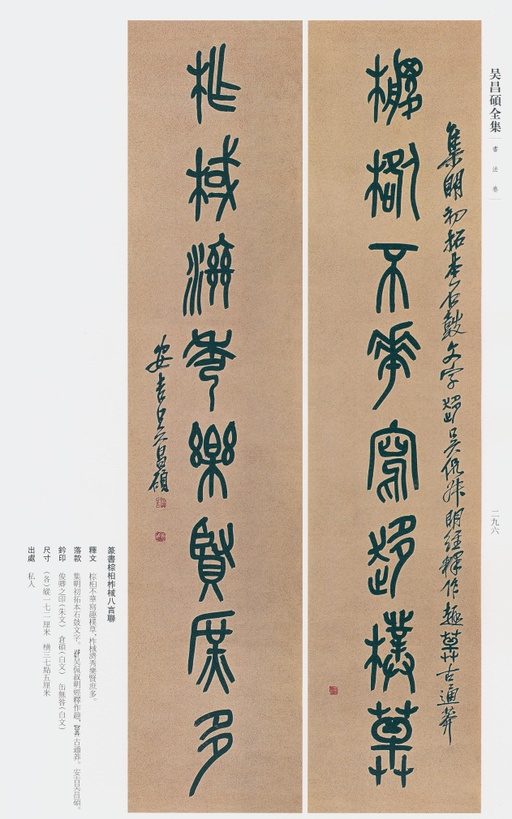 吴昌碩全集
書法卷
二九六
集明初拓本石鼓文字趍吴侃叔明經釋作趣𦱤古通莽
椶桕不華寫趍樸𦱤
柞棫濟秀樂賢庶多
安吉吴昌碩
篆書棕桕柞棫八言聯
釋文 棕桕不華寫趣樸草，柞棫濟秀樂賢庶多。
落款 集明初拓本石鼓文字。吴侃叔明經釋作趣，古通莽。安吉吴昌碩。
鈐印 俊卿之印（朱文） 倉碩（白文） 缶無咎（白文）
尺寸 （各）縱一七二厘米 橫三七點五厘米
出處 私人